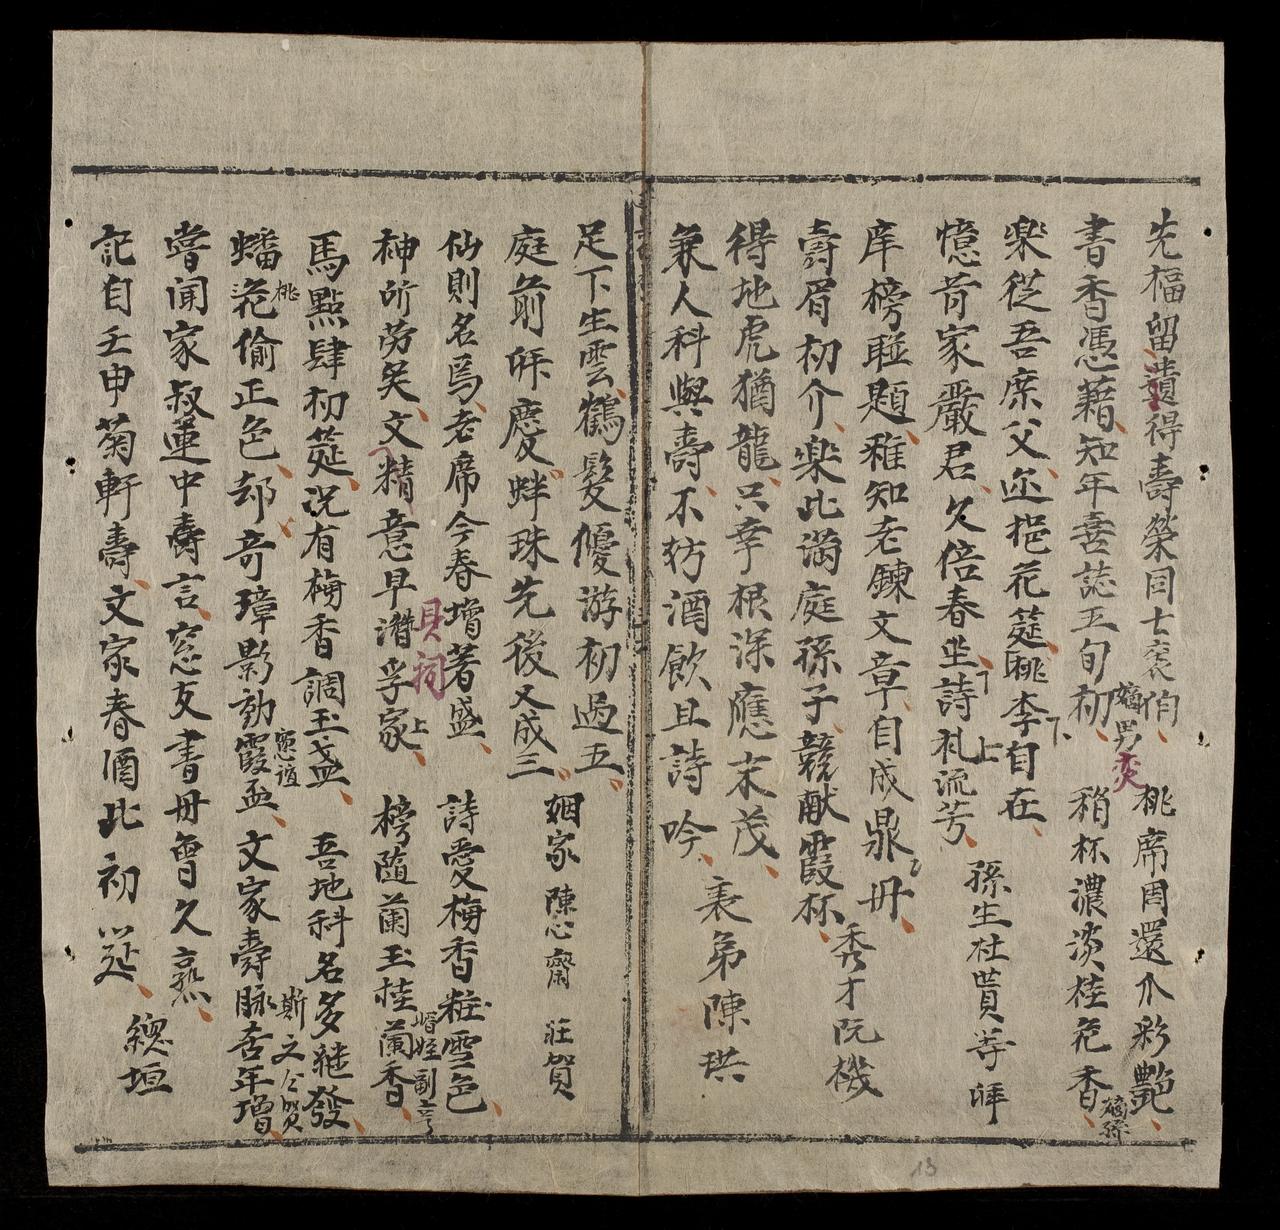 先福留遺得壽榮同士衮伯 桃席周還介彩艷
嫡男奕
書香憑藉知年喜誌五旬初 稍杯濃淡桂花香
嫡孫
樂從吾席父迩挹花筵桃李自在下
憶昔家嚴君久倍春坐詩礼流芳 孫生杜貫等拜
下上
庠榜聯題稚知老鍊文章自成鼎冊 秀才阮機
壽眉初介樂比滿庭孫子競献霞杯
得地虎猶龍只幸根深應末茂 表弟陳珙
兼人科與壽不妨酒飲且詩吟
足下生雲鶴髮優游初過五 姻家陳心齋 莊賀
庭前拜慶蚌珠先後又成三
仙則名焉老席今春增著盛 詩愛梅香粧雪色
貝祠 婿姪副亨
神所勞矣文精意早潛孚家上 榜隨蘭玉桂蘭香
馬點肆初筵况有梅香調玉盏 吾地科名多継發
桃 憲誼 斯文公賀
蟠花偷正色却奇璋影勸霞盃 文家壽脉杏年增
嘗聞家叔運中壽言窓友書冊曾久熟 總垣
記自壬申菊軒壽文家春酒此初筵
13